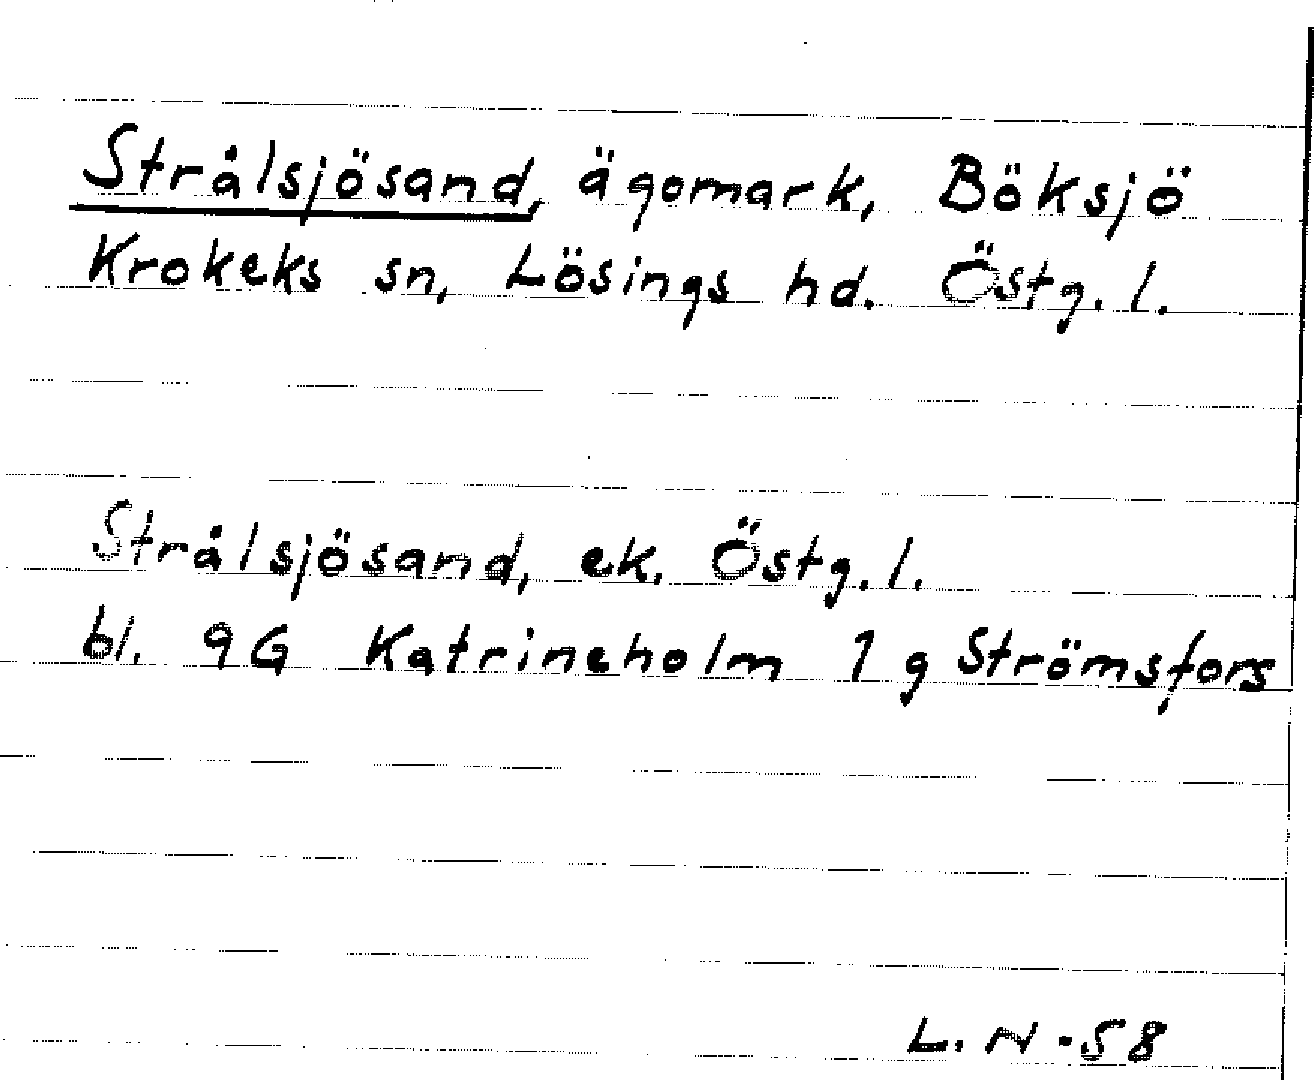 Strålsjösand, ägomark, Böksjö
Krokeks sn, Lösings hd. Östg. l.
Strålsjösand, ek. Östg. l.
bl. 9G Katrineholm 1 g Strömsfors
L. N -58